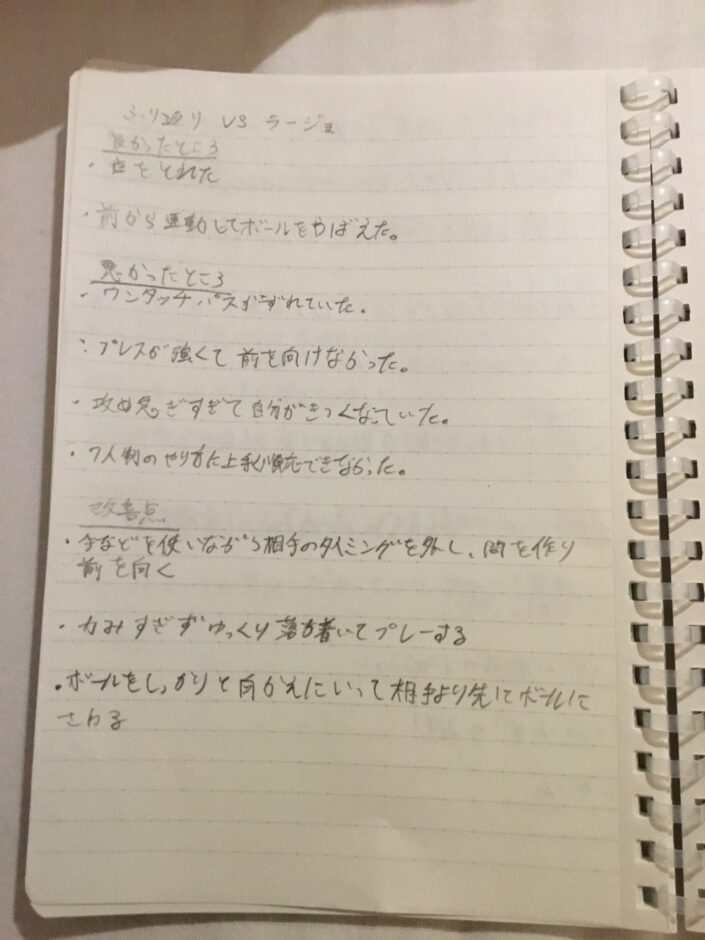 ふり返り VS ラージョ
良かったところ
・点をとれた
・前から連動してボールをやばえた。
悪かったところ
・ワンタッチパスがずれていた。
・プレスが強くて前を向けなかった。
・攻め急ぎすぎて自分がきつくなっていた。
・7人制のやり方に上手く順応できなかった。
改善点
・手などを使いながら相手のタイミングを外し、間を作り
前を向く
・力みすぎずゆっくり落ち着いてプレーする
・ボールをしっかりと向かえにいって相手より先にボールに
さわる